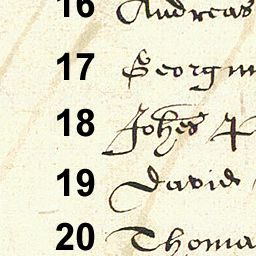 16 Andreas
17 Georgiu
18 Johēs
19 David
20 Thoma